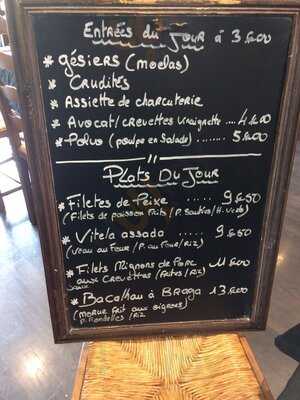 Entrées du Jour à 3€00
* Gésiers (moelas)
* Crudités
* Assiette de charcuterie
* Avocat/crevettes vinaigrette .... 4€00
* Polvo (poulpe en salade) ....... 5€00
Plats Du Jour
* Filetes de Peixe ..... 9€50
(Filets de poisson frits / P. Sautées / H. Verts)
* Vitela assada ..... 9€50
(Veau au four / P. au Four / Riz)
* Filets Mignons de Porc 11€00
aux Crevettes (Frites / Riz)
Sauce
* Bacalhau à Braga 13€00
(morue frit aux oignons)
P. Rondelles / Riz